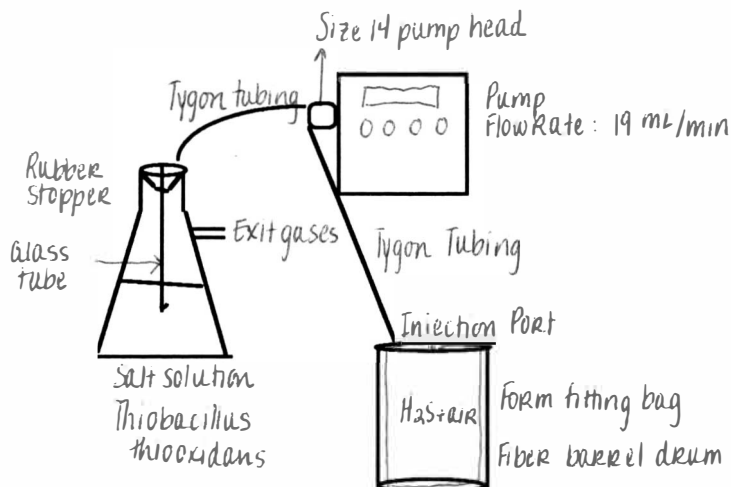 Size 14 pump head
Tygon tubing
Pump
Flow Rate: 19 mL/min
Rubber
Stopper
Exit gases
Glass
tube
Tygon Tubing
Injection Port
Salt solution
Thiobacillus
thiooxidans
H2S+AIR
Form fitting bag
Fiber barrel drum